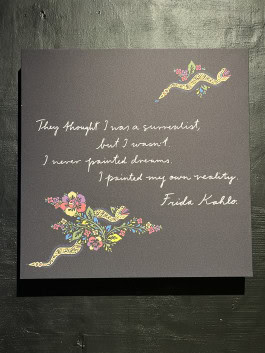 They thought I was a surrealist,
but I wasn't.
I never painted dreams.
I painted my own reality.
Frida Kahlo.